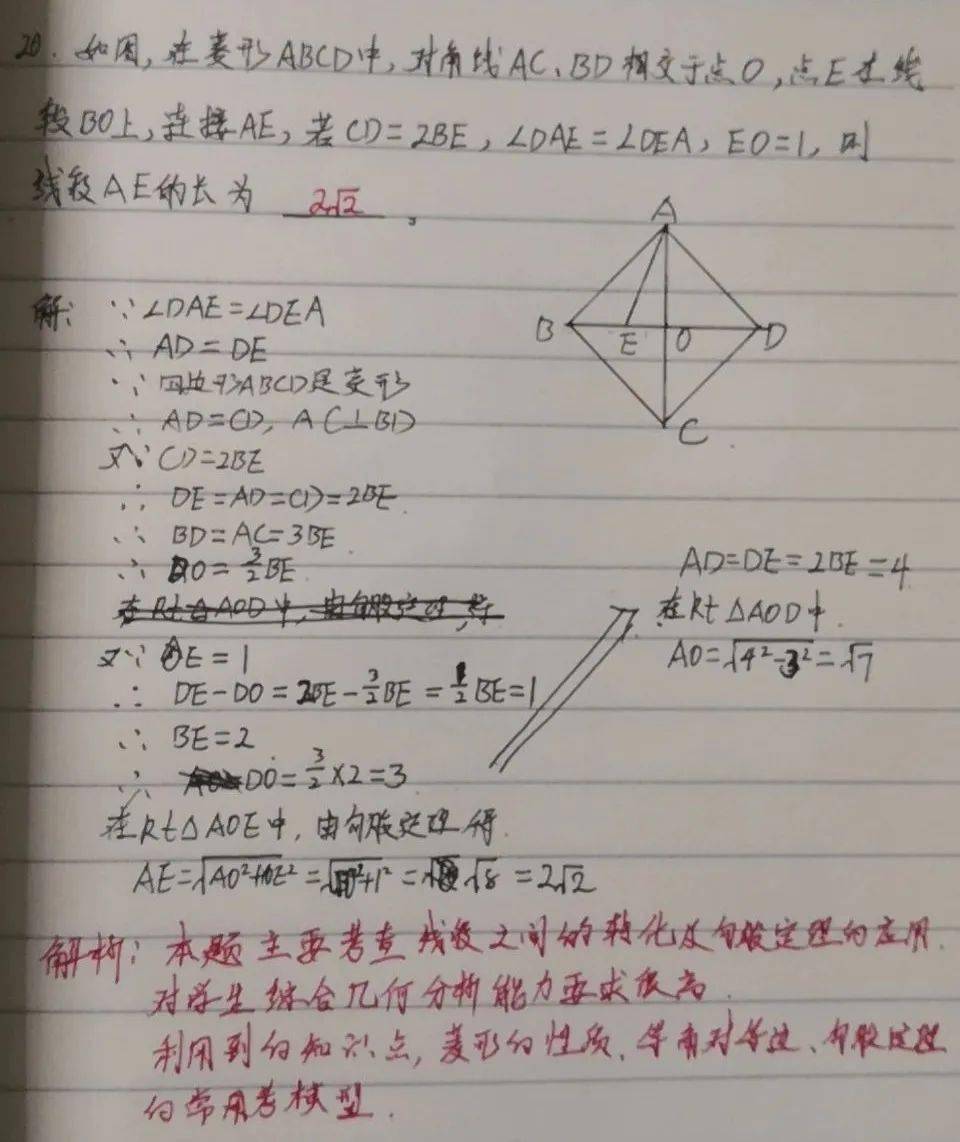 20. 如图,在菱形ABCD中,对角线AC、BD相交于点O,点E在线
段BO上,连接AE,若CD=2BE,∠DAE=∠DEA,EO=1,则
线段AE的长为 2√2 。
A
B
E
O
D
C
解: ∵∠DAE=∠DEA
∴ AD=DE
∵ 四边形ABCD是菱形
∴ AD=CD, AC⊥BD
又∵ CD=2BE
∴ DE=AD=CD=2BE
∴ BD=AC=3BE
∴ DO=3/2BE
在Rt△AOD中,由勾股定理,得
又∵ OE=1
∴ DE-DO=2BE-3/2BE=1/2BE=1
∴ BE=2
∴ DO=3/2×2=3
AD=DE=2BE=4
在Rt△AOD中
AO=√4²-3²=√7
在Rt△AOE中,由勾股定理得
AE=√AO²+OE²=√²+1²=√8=2√2
解析:本题主要考查线段之间的转化及勾股定理的应用.
对学生综合几何分析能力要求很高.
利用到的知识点,菱形的性质、等角对等边、勾股定理
的常用考模型.